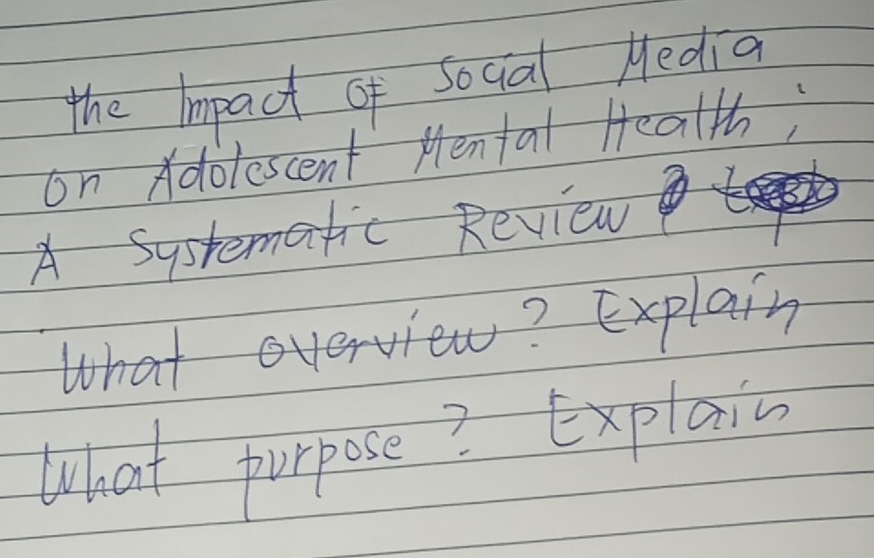 The Impact of Social Media
on Adolescent Mental Health:
A Systematic Review
What overview? Explain
What purpose? Explain